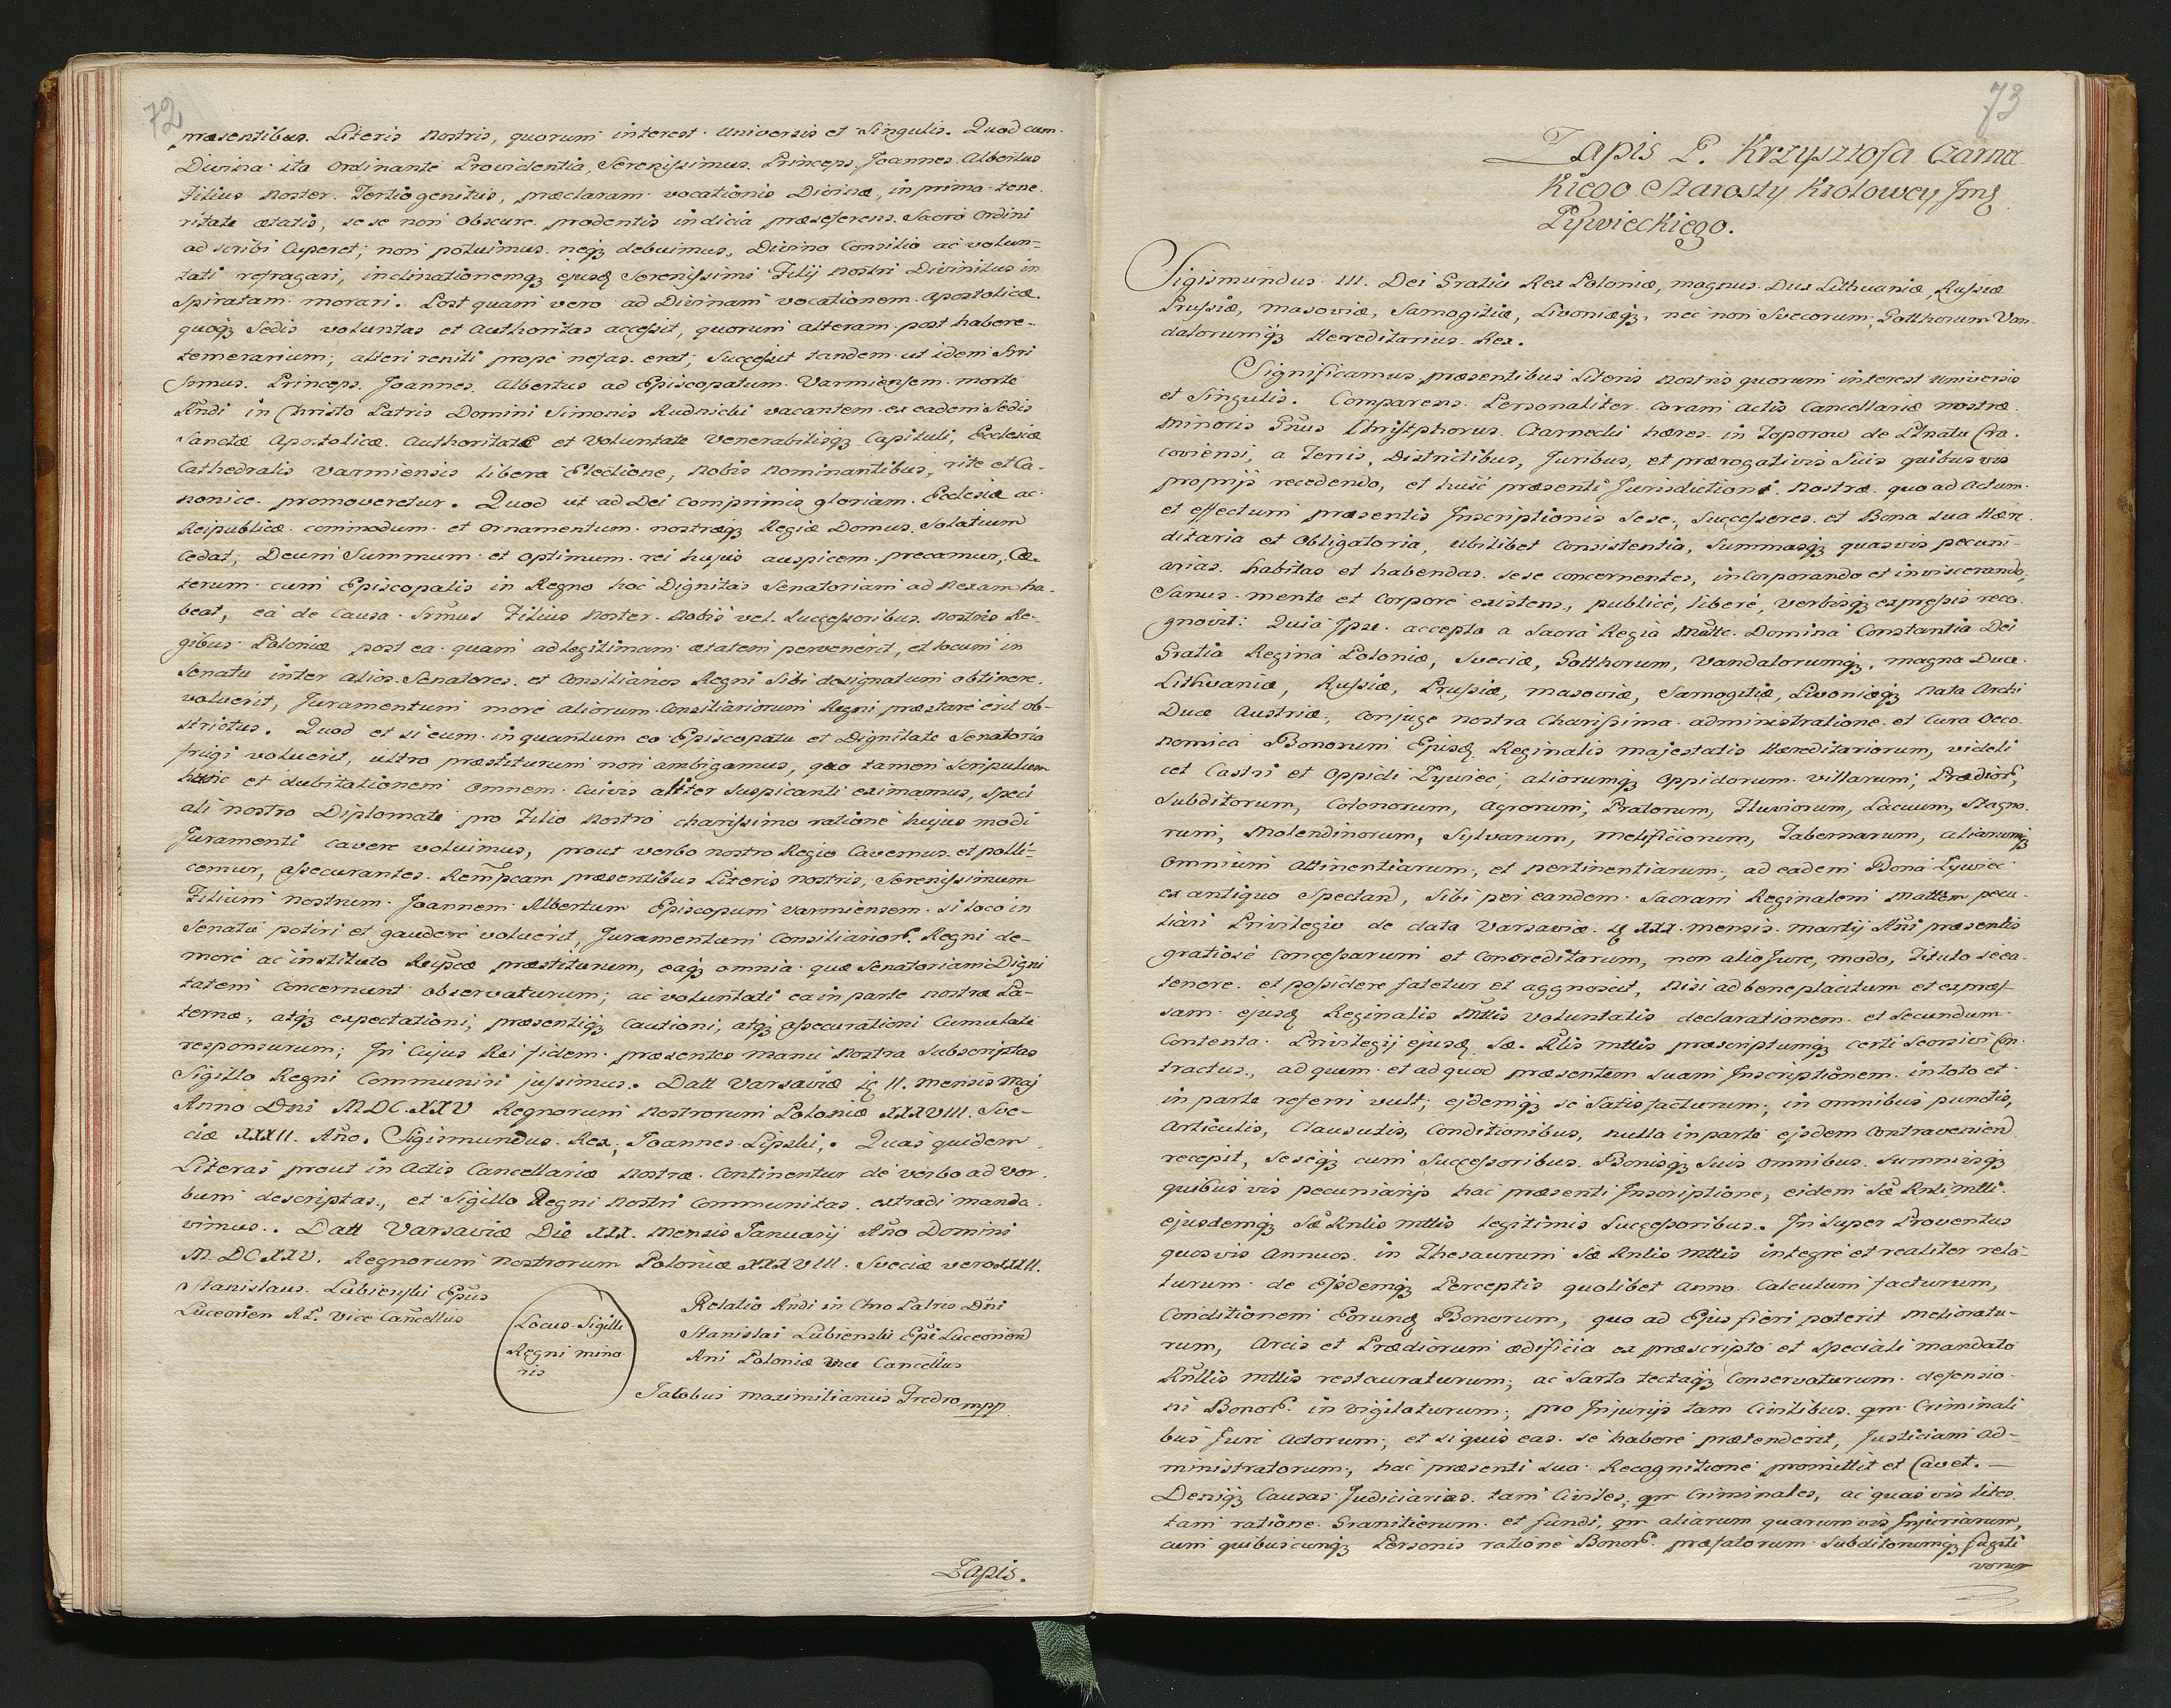 72
præsentibus. Literis nostris, quorum interest. universis et Singulis. Quod cum.
Divina ita ordinante Providentia, Serenissimus. Princeps. Joannes. Albertus
Filius noster. Tertiogenitus, præclaram vocationis Divinæ, in prima tene.
ritate ætatis, se se non obscure prodentis indicia præseferens. Sacro ordini
ad scribi Cuperet; non potuimus neqʒ debuimus, Divino Consilio ac volun-
tati refragari, inclinationemqʒ ejusd Serenissimi Filij nostri Divinitus in
Spiratam morari. Post quam vero ad Divinam vocationem Apostolicæ.
quoqʒ Sedis voluntas et Authoritas accessit, quorum alteram post habere-
temerarium; alteri reniti prope nefas erat; Successit tandem ut idem Sere
simus. Princeps. Joannes. Albertus ad Episcopatum Varmiensem morte
Rndi in Christo Patris Domini Simonis Rudnicki vacantem ex eadem Sedis
Sanctæ Apostolicæ Authoritate et Voluntate Venerabilisqʒ Capituli, Ecclesiæ
Cathedralis Varmiensis libera Electione, nobis nominantibus, rite et Ca-
nonice promoveretur. Quod ut ad Dei Comprimis gloriam. Ecclesiæ ac.
Reipublicæ commodum et ornamentum nostræqʒ Regiæ Domus Solatium
Cedat; Deum Summum et optimum rei hujus auspicem precamur, Cæ-
terum cum Episcopalis in Regno hoc Dignitas Senatoriam ad nexam ha-
beat, ea de Causa Srmus Filius noster nobis vel. Successoribus. nostris Re-
gibus Poloniæ post ea quam ad legitimam ætatem pervenerit, et locum in
Senatu inter alios. Senatores. et Consiliarios Regni Sibi designatum obtinere.
voluerit, Juramentum more aliorum Consiliariorum Regni præstare erit ob-
strictus. Quod et si eum in quantum eo Episcopatu et Dignitate Senatoria
frugi voluerit, ultro præstiturum non ambigamus, quo tamen Scripulum
hunc et dubitationem omnem cuivis aliter Suspicanti eximamus, speci
ali nostro Diplomate pro Filio nostro charissimo ratione hujus modi
Juramenti cavere voluimus, prout verbo nostro Regio Cavemus et polli-
cemur, assecurantes. Rempcam præsentibus Literis nostris, Serenissimum
Filium nostrum Joannem Albertum Episcopum Varmiensem si loco in
Senatu potiri et gaudere voluerit, Juramentum Consiliarior. Regni de-
more ac instituto Reipcæ præstiturum, eaqʒ omnia quæ Senatoriam Digni
tatem Concernunt observaturum; ac voluntati ea in parte nostræ Pa-
ternæ, atqʒ expectationi, præsentiqʒ Cautioni, atqʒ assecurationi Cumulate
responsurum; In Cujus Rei fidem præsentes manu nostra Subscriptas
Sigillo Regni Communiri jussimus. Datt Varsaviæ II. mensis Maj
Anno Dni MDC.XXV Regnorum nostrorum Poloniæ XXXVIII. Sve-
ciæ XXXII. Año. Sigismundus Rex, Joannes Lipski,. Quas quidem
Literas prout in Actis Cancellariæ nostræ Continentur de verbo ad ver.
bum descriptas, et Sigillo Regni nostri Communitas extradi manda.
vimus.. Datt Varsaviæ Die XXX. mensis Januarij Año Domini
MDCXXV. Regnorum nostrorum Poloniæ XXXVIII. Sveciæ vero XXXII.
Stanislaus. Łubieński Epus
Luceorien R.P. Vice Cancellius
Locus Sigilli
Regni mino
ris
Relatio Rndi in Chro Patris Dñi
Stanislai Łubienski Epi Luceoriend
Rni Poloniæ Vice Cancellus
Jacobus Maximilianus Fredro mpp
Zapis.
73
Zapis P. Krzysztofa Czarna
Kiego Starosty Krolowey Jmq
Zywieckiego.
Sigismundus III. Dei Gratia Rex Poloniæ, magnus Dux Lithuaniæ, Russiæ
Prussiæ, masoviæ, Samogitiæ, Livoniæqʒ, nec non Svecorum, Gotthorum Van-
dalorumqʒ Hæreditarius Rex.
Significamus præsentibus Literis nostris quorum interest universis
et Singulis. Comparens Personaliter coram Actis Cancellariæ nostræ.
minoris Gñus Christphorus. Czarnecki hæres in Toporow de Ptnatu Cra.
coviensi, a Terris, Districtibus, Juribus, et prærogativis Suis quibus vis
proprijs recedendo, et huic præsenti Jurisdictioni nostræ quo ad Actum.
et effectum præsentis Inscriptionis Sese, Successores et Bona sua Hære.
ditaria et Obligatoria, ubilibet Consistentia, Summasqʒ quasvis pecuni-
arias. habitas et habendas sese concernentes, incorporando et inviscerando,
Sanus mente et Corpore existens, publice, libere, verbisqʒ expressis reco.
gnovit: Quia Ipse accepta a Sacra Regia Mtte. Domina Constantia Dei
Gratia Regina Poloniæ, Sveciæ, Gotthorum, Vandalorumqʒ, magna Duce.
Lithuaniæ, Russiæ, Prussiæ, masoviæ, Samogitiæ, Livoniæqʒ nata Archi
Duce Austriæ, conjuge nostra Charissima administratione et Cura Oeco.
nomica Bonorum Ejusd Reginalis majestatis Hæreditariorum, videli
cet Castri et oppidi Zywiec, aliorumqʒ oppidorum villarum, Prædior,
Subditorum, Colonorum, Agrorum, Pratorum, Fluviorum, Lacuum, Stagno.
rum, Molendinorum, Sylvarum, Mellificiorum, Tabernarum, aliarumqʒ
omnium Attinentiarum, et pertinentiarum, ad eadem Bona Zywiec
ex antiquo Spectand, Sibi per eandem Sacram Reginalem Mattem pecu-
liari Privilegio de data Varsaviæ XXX. mensis Martij Añi præsentis
gratiose Concessarum et Concreditarum, non alio Jure, modo, Titulo se ea.
tenere et possidere fatetur et aggnoscit, nisi ad beneplacitum et expres-
sam ejusd Reginalis Mttis voluntatis declarationem et Secundum
Contenta Privilegij ejusd Sæ. Rlis mttis præscriptumqʒ certi Seorsivi Con-
tractus, ad quem et ad quod præsentem suam Inscriptionem in toto et
in parte referri vult; ejdemqʒ se Satisfacturum, in omnibus punctis,
Articulis, Clausulis, Conditionibus, nulla in parte ejsdem Contraveniend
recepit, seseqʒ cum Successoribus. Bonisqʒ Suis omnibus. Summisqʒ
quibus vis pecuniarijs hac præsenti Inscriptione, eidem Sæ Rnli mtti.
ejusdemqʒ Sæ Rnlis mttis legitimis Successoribus. In Super Proventus
quos vis Annuos. in Thesaurum Sæ Rnlis mttis integre et realiter rela-
turum de Ejsdemqʒ Perceptis quolibet anno Calculum facturum,
Conditionem Eorund Bonorum, quo ad Ejus fieri poterit melioratu-
rum, Arcis et Prædiorum ædificia ex præscripto et Speciali mandato
Rnllis mttis restauraturum; ac Sarta tectaqʒ Conservaturum defensio-
ni Bonor. in vigilaturum; pro Injurijs tam Civilibus. qm Criminali
bus Jure Actorum; et si quis eas. se habere prætenderit, Justiciam ad-
ministratorum; hac præsenti sua Recognitione promittit et Cavet.—
Deniqʒ Causas Judiciarias tam Civiles, qm Criminales, ac quas vis lites
tam ratione Granitierum et fundi, qm aliarum quarumvis Injuriarum,
cum quibuscunqʒ Personis ratione Bonor. præfatorum Subditorumqʒ fugiti
vorum